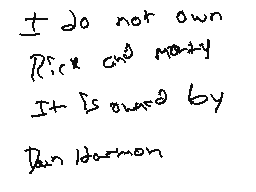 I do not own
Rick and morty
It is owned by
Dan Harmon